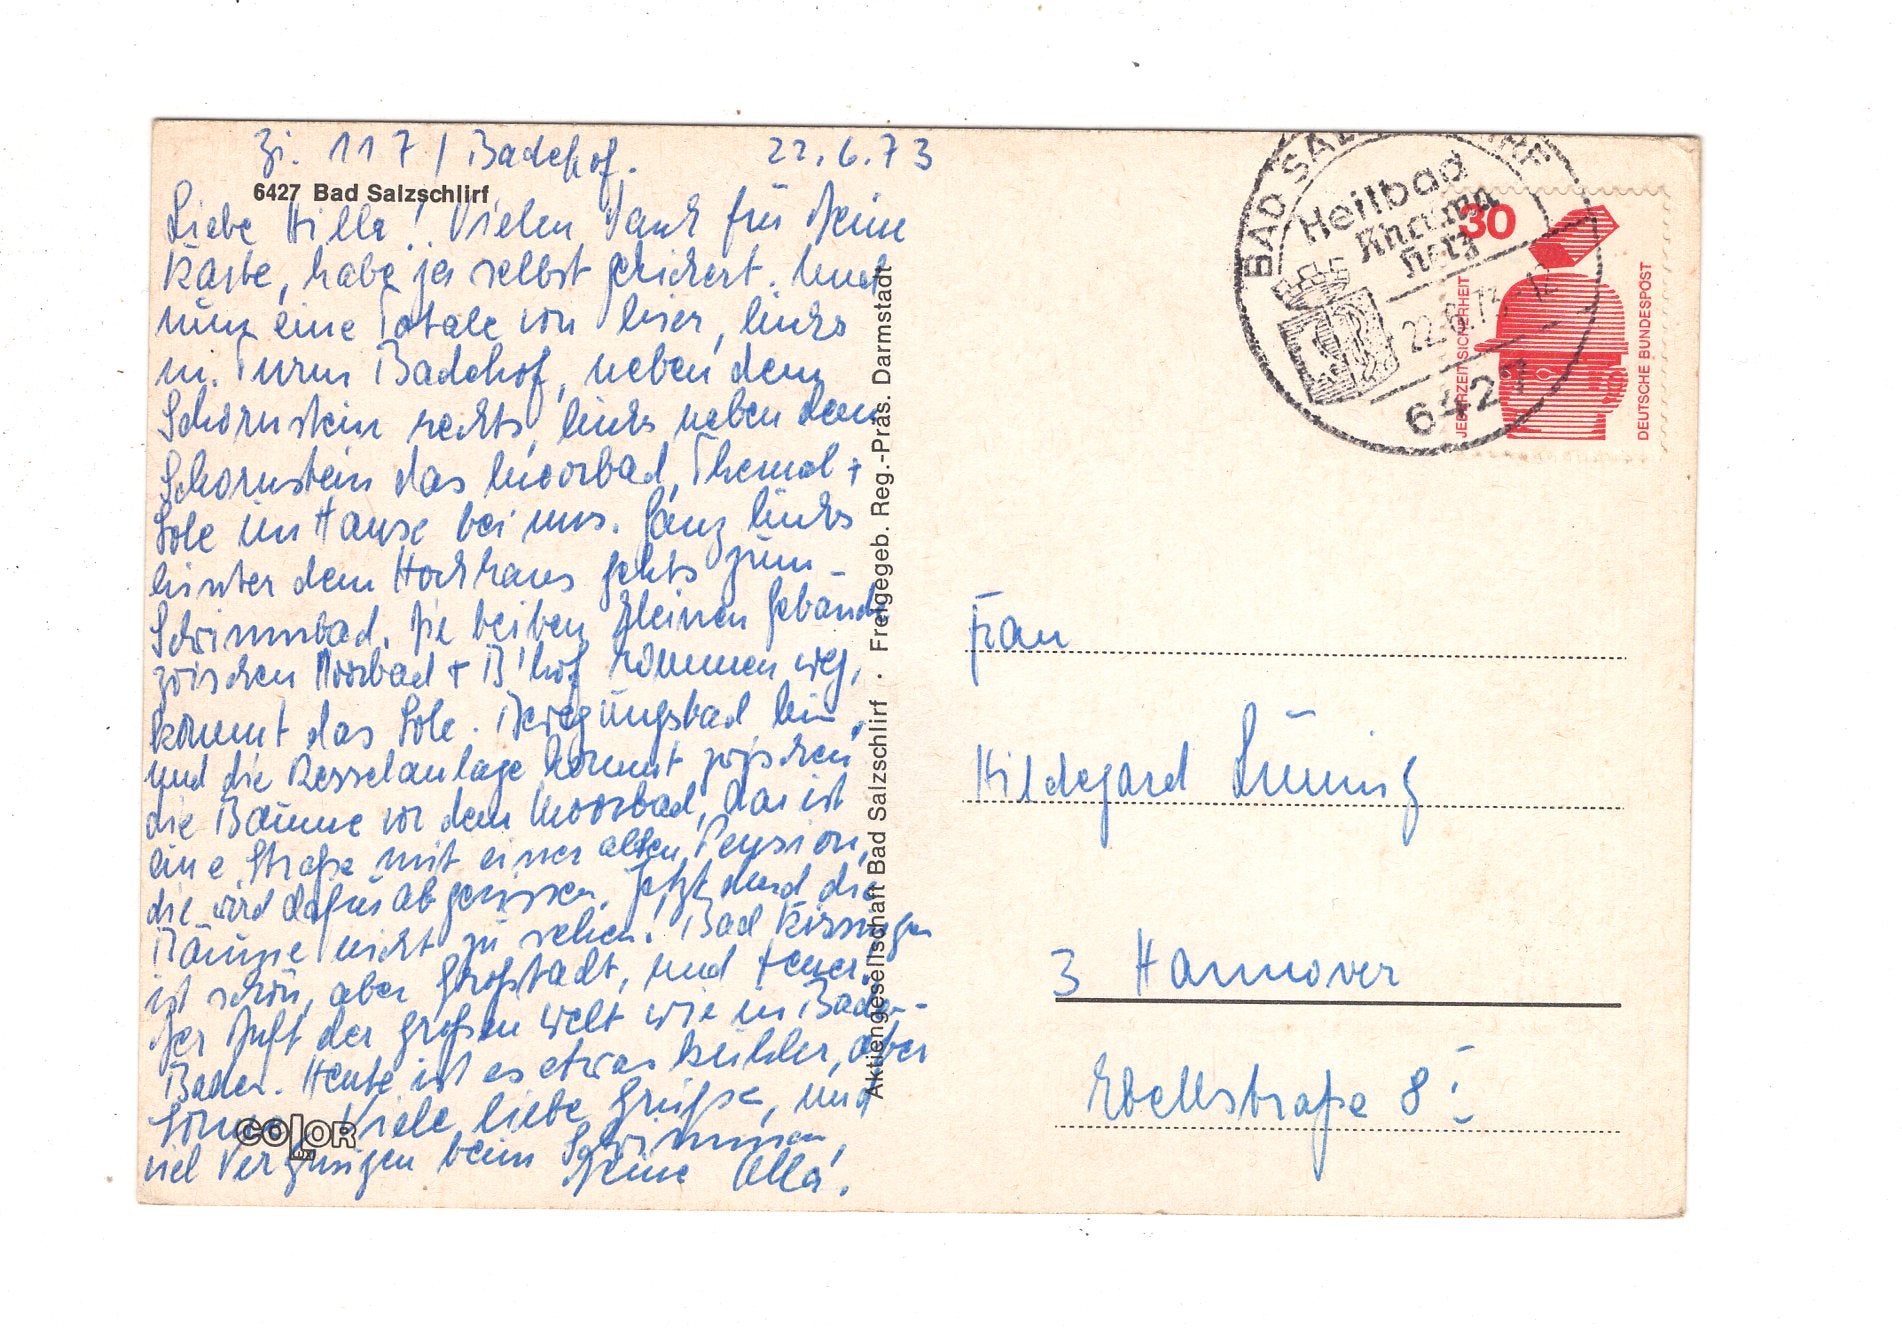 Zi. 117 / Badehof. 22.6.73
6427 Bad Salzschlirf
Liebe Hilla! Vielen Dank für Deine
Karte, habe ja selbst gekichert. Und
nun eine Totale von hier, links
m. Turm Badehof, neben dem
Schornstein rechts, links neben dem
Schornstein das Moorbad, Themal +
Sole im Hause bei uns. Ganz links
hinter dem Hochhaus gehts zum
Schwimmbad. Die beiden kleinen Gebäude
zwischen Moorbad + B'hof kommen weg,
kommt das Sole-Bewegungsbad hin,
und die Kesselanlage kommt zwischen
die Bäume vor dem Moorbad, das ist
eine Straße mit einer alten Pension,
die wird dafür abgerissen. Jetzt durch die
Bäume nicht zu sehen. Bad Kissingen
ist schön, aber Großstadt, und teuer.
Der Duft der großen Welt wie in Baden-
Baden. Heute ist es etwas kühler, aber
Sonne. Viele liebe Grüße, und
viel Vergnügen beim Schwimmen,
Deine Olla.
COLOR
LUX
Aktiengesellschaft Bad Salzschlirf · Freigegeb. Reg.-Präs. Darmstadt
BAD SALZSCHLIRF
Heilbad
Rheuma
Herz
22.6.73-12
6427
30
JEDERZEIT SICHERHEIT
DEUTSCHE BUNDESPOST
Frau
Hildegard Lüning
3 Hannover
Ebellstraße 8